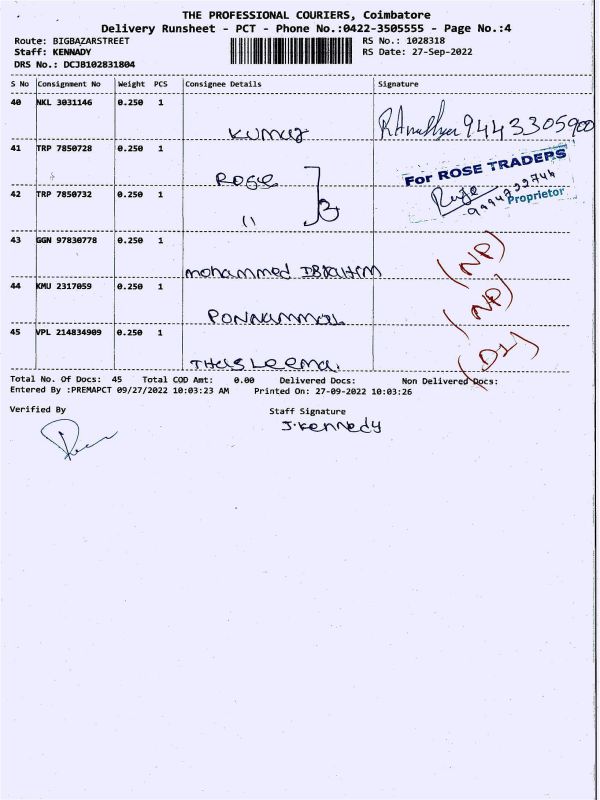 THE PROFESSIONAL COURIERS, Coimbatore
Delivery Runsheet - PCT - Phone No.:0422-3505555 - Page No.:4
Route: BIGBAZARSTREET RS No.: 1028318
Staff: KENNADY RS Date: 27-Sep-2022
DRS No.: DCJB102831804
S No Consignment No Weight PCS Consignee Details Signature
40 NKL 3031146 0.250 1 Kumar 9443305900
41 TRP 7850728 0.250 1 Rose For ROSE TRADERS
42 TRP 7850732 0.250 1 " Proprietor
43 GGN 97830778 0.250 1 Mohammed Ibrahim (NP)
44 KMU 2317059 0.250 1 Ponnammal (NP)
45 VPL 214834909 0.250 1 Thasleema. (D1)
Total No. Of Docs: 45 Total COD Amt: 0.00 Delivered Docs: Non Delivered Docs:
Entered By :PREMAPCT 09/27/2022 10:03:23 AM Printed On: 27-09-2022 10:03:26
Verified By Staff Signature
J. Kennedy